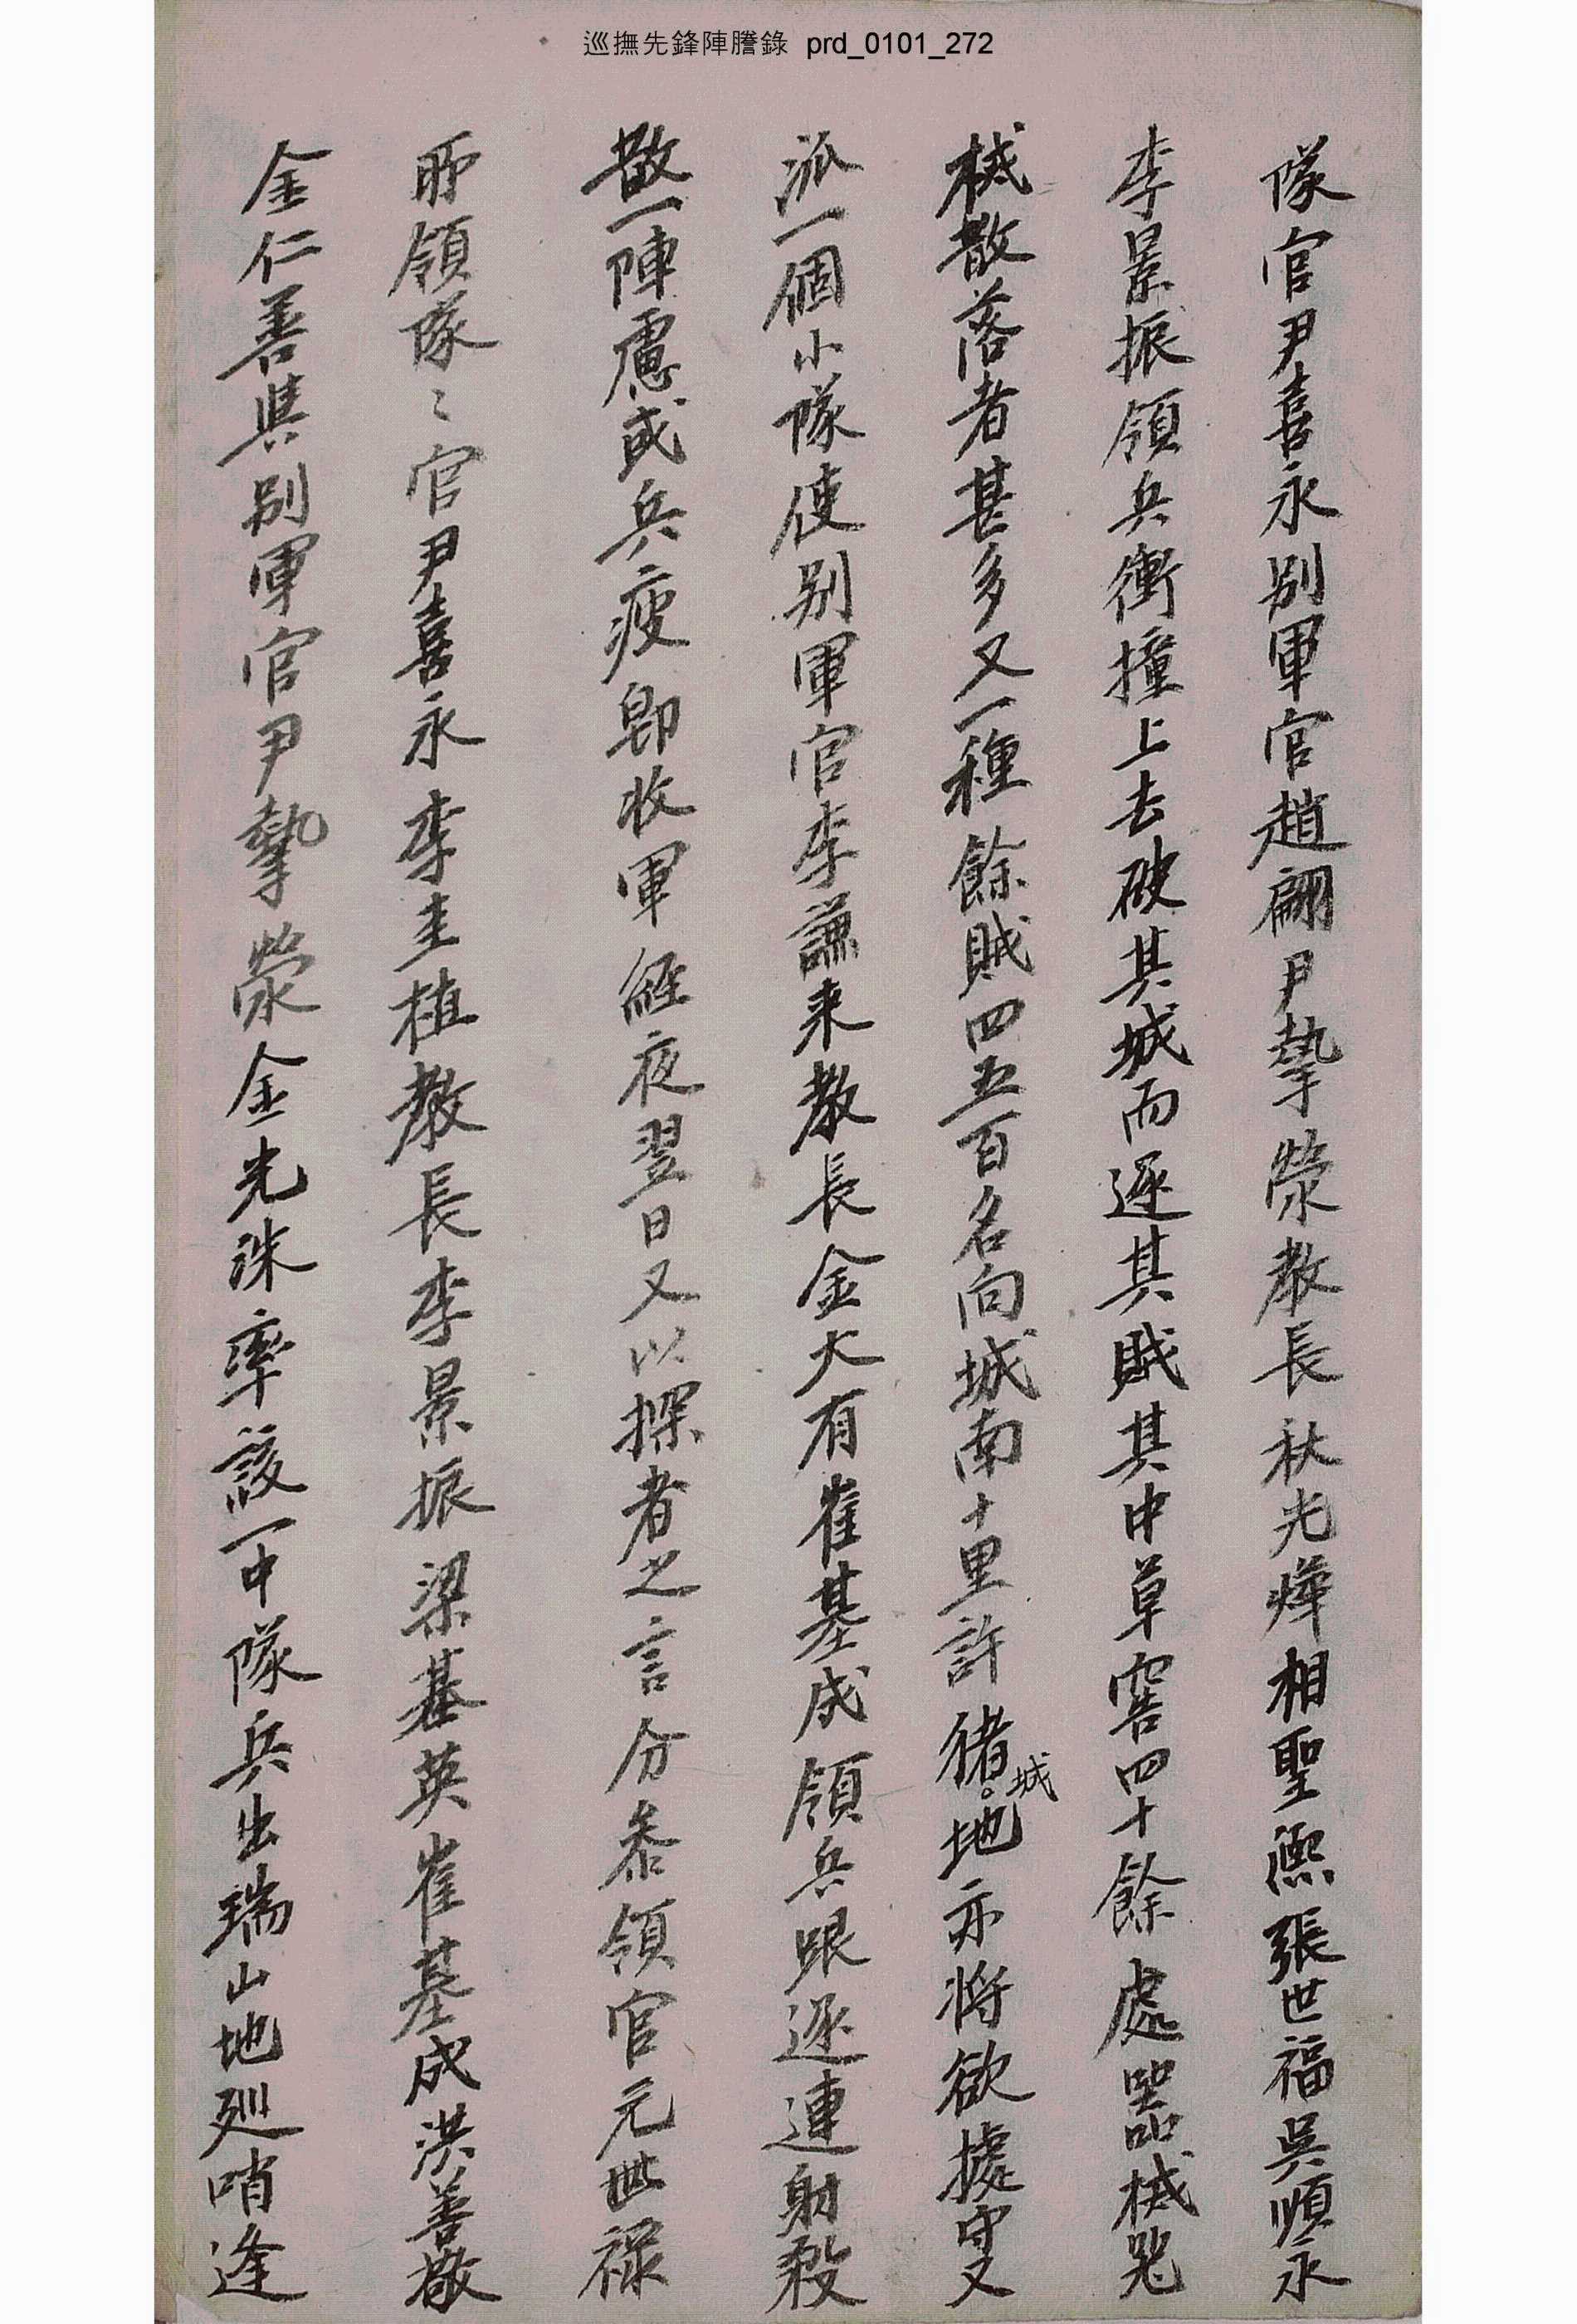 巡撫先鋒陣謄錄 prd_0101_272
隊官尹喜永別軍官趙翩尹摯榮敎長秋光燁相聖熙張世福吳順永
李景振領兵衝撞上去破其城而逐其賊其中草窖四十餘處器械
械散落者甚多又一種餘賊四五百名向城南十里許猪城地亦將欲據守又
派一個小隊使別軍官李謙來敎長金大有崔基成領兵跟逐連射殺
散一陣慮或兵疲卽收軍經夜翌日又以探者之言分叅領官元世祿
所領隊〻官尹喜永李圭植敎長李景振梁基英崔基成洪善敬
金仁善與別軍官尹摯榮金光洙率該一中隊兵出瑞山地廵哨逢